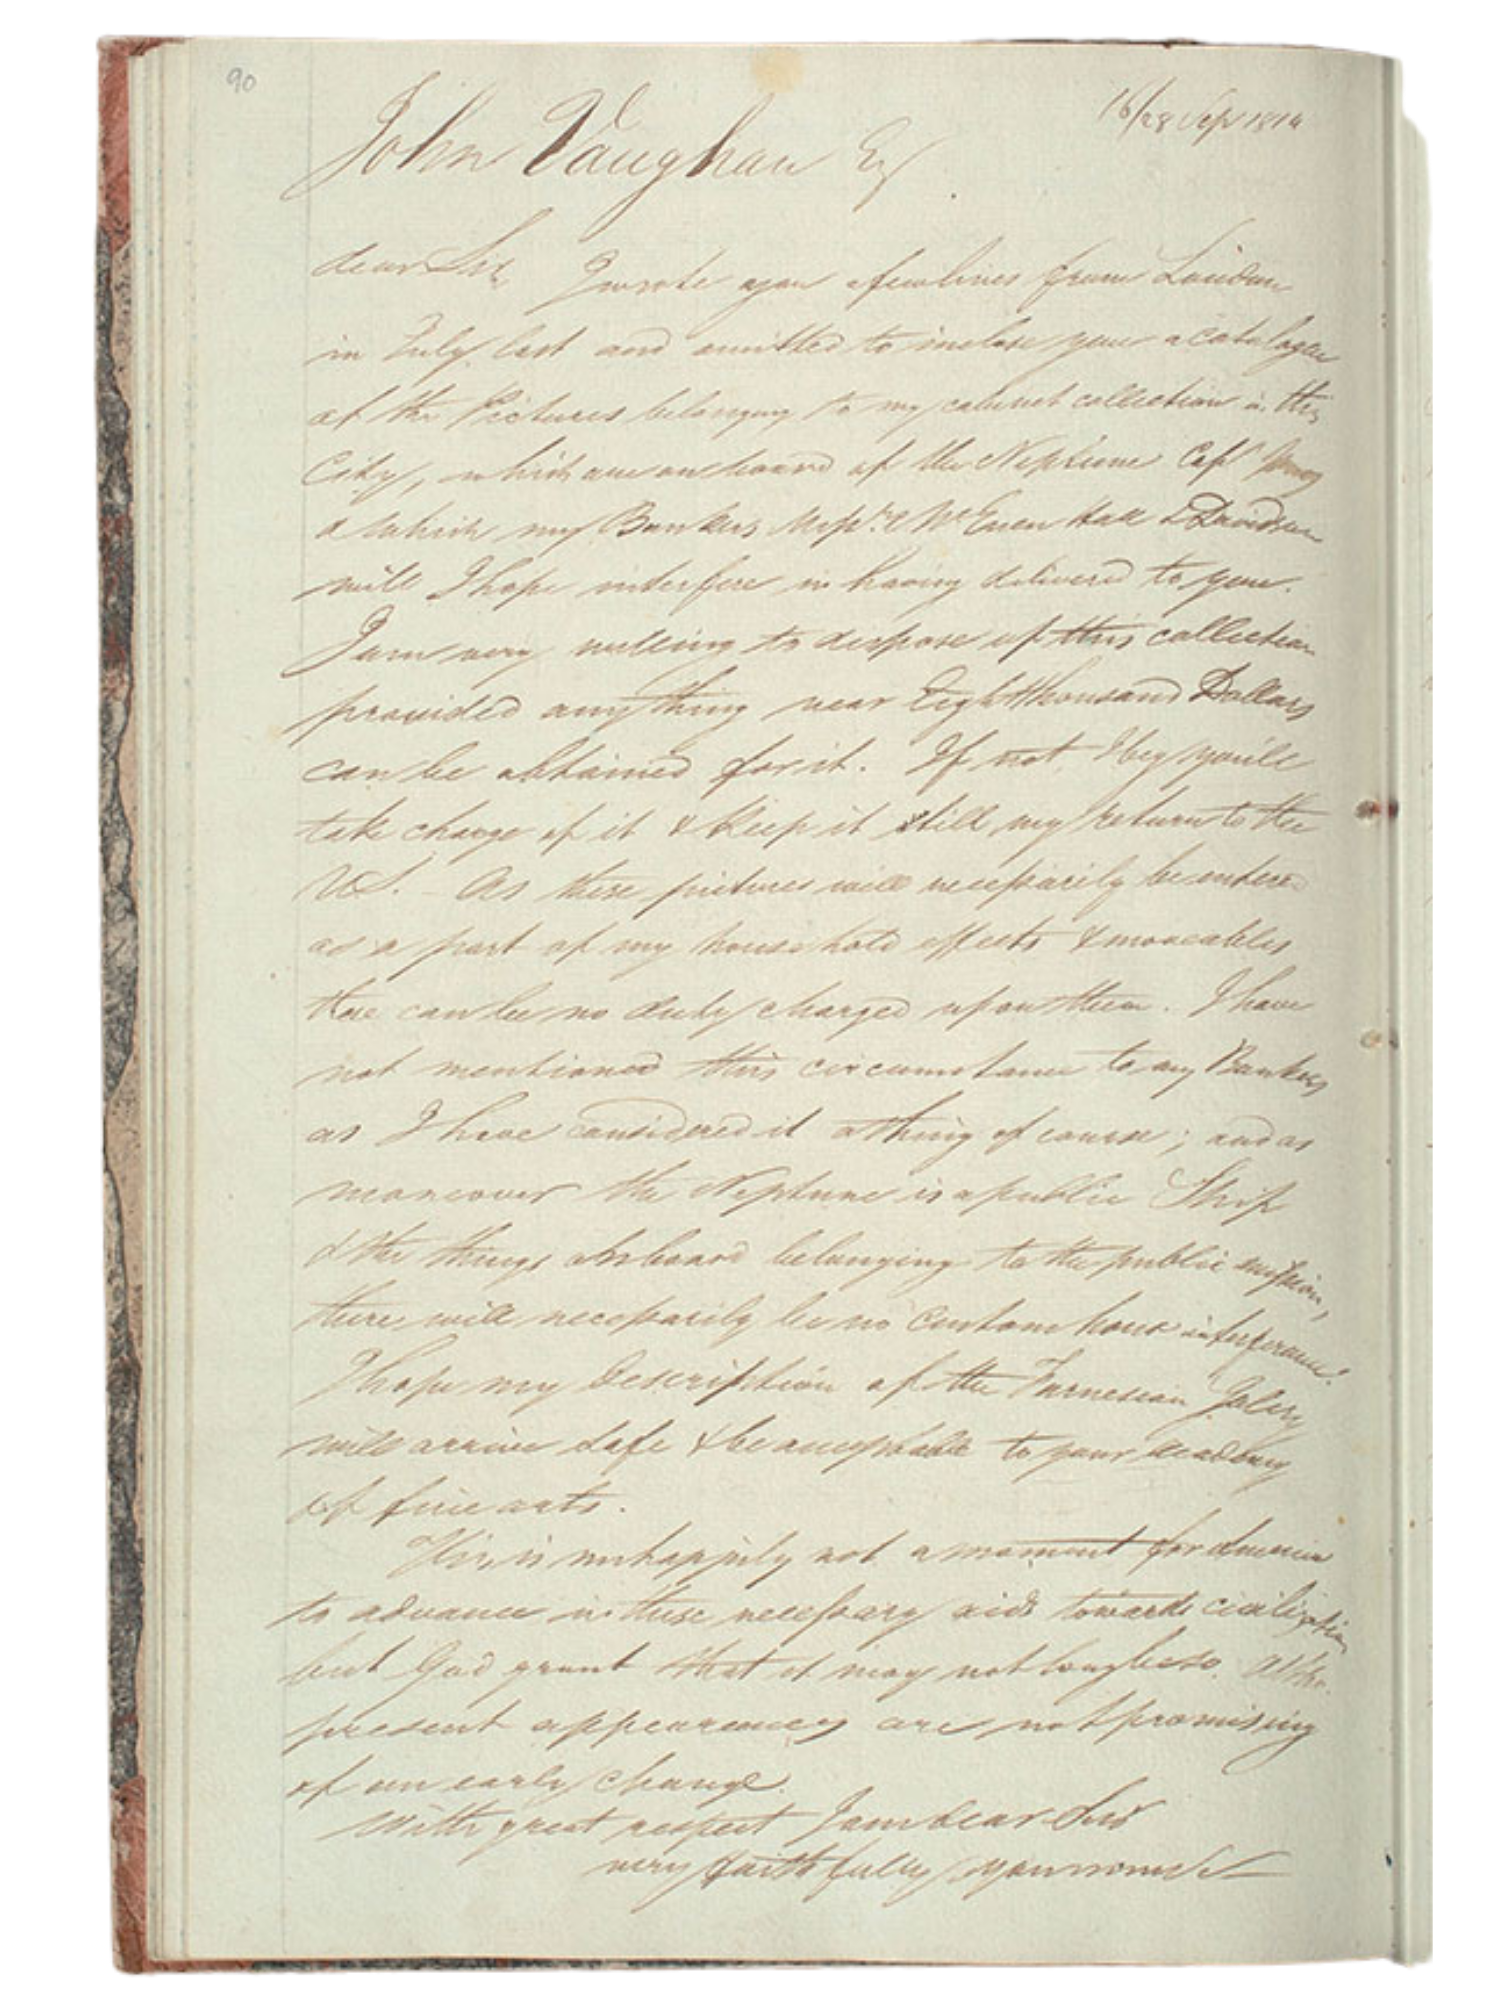 90
16/28 Sep 1814
John Vaughan Esq
dear Sir, I wrote you a few lines from London
in July last and omitted to inclose you a catalogue
of the Pictures belonging to my cabinet collection in this
City, which are on board of the Neptune Capt
& which my Bankers Messrs McEuen Hale & Davidson
will I hope interfere in having delivered to you.
I am very willing to dispose of this collection
provided any thing near Eight thousand Dollars
can be obtained for it. If not I beg you'll
take charge of it & keep it till my return to the
US. – As these pictures will necessarily be entered
as a part of my household effects & moveables
there can be no duty charged upon them. I have
not mentioned this circumstance to my Bankers
as I have considered it a thing of course; and as
moreover the Neptune is a public Ship
& the things on board belonging to the public mission,
there will necessarily be no Custom house interference.
I hope my description of the Farnesian Galery
will arrive safe & be acceptable to your academy
of fine arts.
This is unhappily not a moment for America
to advance in these necessary aids towards civilization
but God grant that it may not long be so. altho.
present appearances are not promising
of an early change.
With great respect I am dear Sir
very faithfully yours